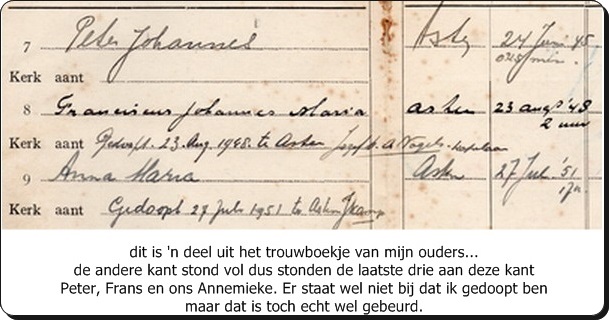 7 Peter Johannes Asten 24 Jun. '45
0.45 min.
Kerk aant
8 Franciscus Johannes Maria asten 23 aug. '48
2 uur
Kerk aant Gedoopt. 23. Aug. 1948. te Asten A. Vogels. kapelaan
9 Anna Maria Asten 27 Juli '51
Kerk aant Gedoopt 27 Juli 1951 te Asten
dit is 'n deel uit het trouwboekje van mijn ouders...
de andere kant stond vol dus stonden de laatste drie aan deze kant
Peter, Frans en ons Annemieke. Er staat wel niet bij dat ik gedoopt ben
maar dat is toch echt wel gebeurd.